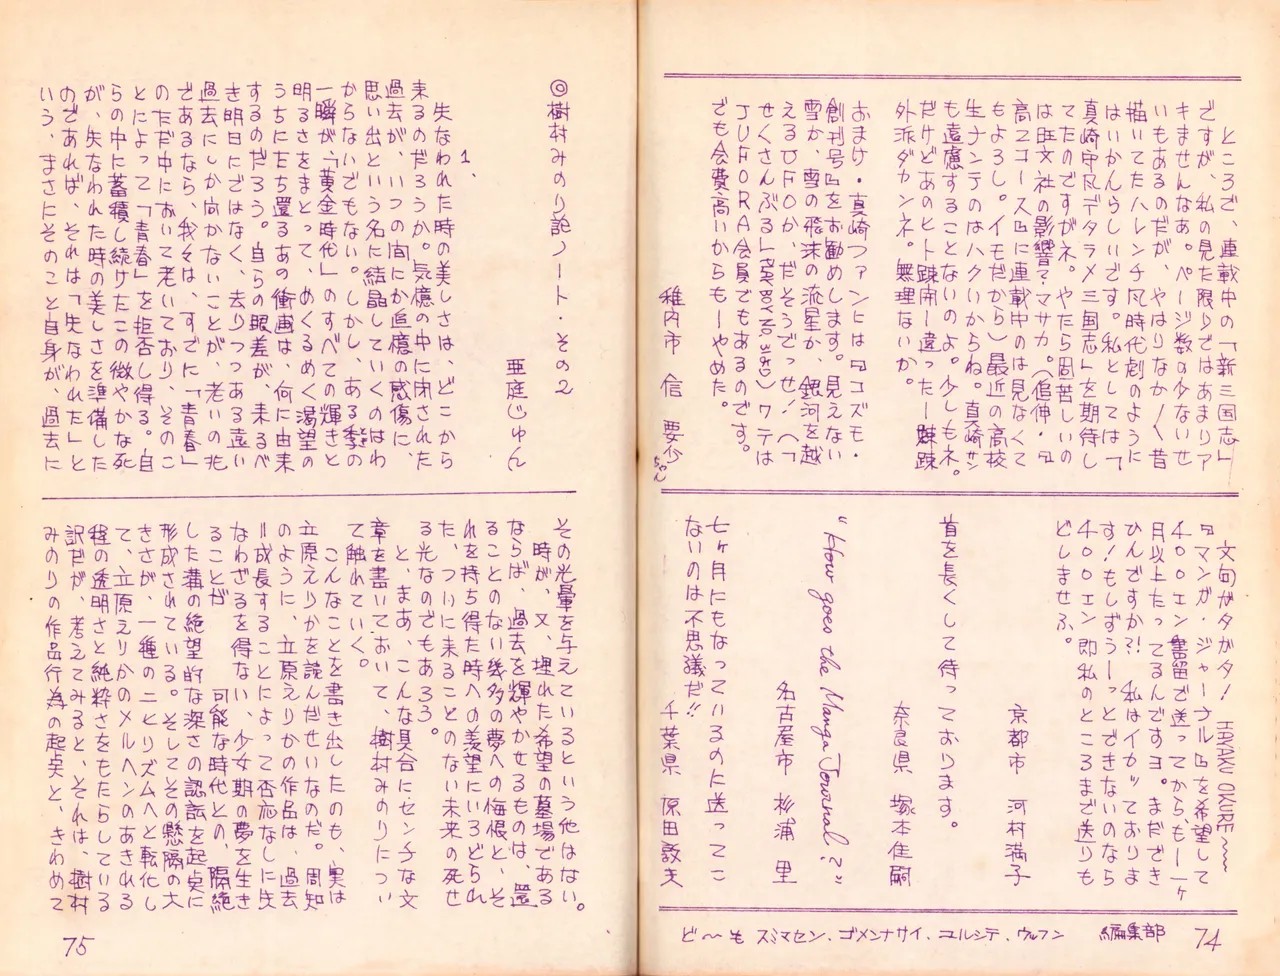 ところで、連載中の「新三国志」
ですが、私の見た限りではあまりア
キませんなあ。ページ数の少ないせ
いもあるのだが、やはりなか〳〵昔
描いてたハレンチ凡時代劇のように
はいかんらしいです。私としては「
真崎守凡デタラメ三国志」を期待し
てたのですがネ。やたら周苦しいの
は旺文社の影響？マサカ。(追伸・『
高二コース』に連載中のは見なくて
もよろし。イモだから)最近の高校
生ナンテのはハクいからね。真崎サン
も遠慮することないのよ。少しもネ。
だけどあのヒト疎開ー違ったー疎
外派ダカンネ。無理ないか。
おまけ・真崎ファンには『コズモ・
創刊号』をお勧めします。見えない
雪か、雪の飛沫の流星か、銀河を越
えるUFOか、だそうでっせ！(「
せくさんぶる」
ワテは
JUFORA会員でもあるのです。
でも会費高いからもーやめた。
稚内市　信　要少
ちゃん
文句がタがタ！　HAYAKU OKURE〜〜
『マンガ・ジャーナル』を希望して
400エン書留で送ってから、も一ヶ
月以上たってるんですヨ。まだざき
ひんですか?!　私はイカッておりま
す！もしずうーっとできないのなら
400エン即私のところまで送りも
どしませふ。
京都市　河村満子
首を長くして待っております。
奈良県　塚本佳嗣
"How goes the Manga Journal?"
名古屋市　杉浦　里
七ヶ月にもなっているのに送ってこ
ないのは不思議だ!!
千葉県　原田敦夫
ど〜も スミマセン、ゴメンナサイ、ユルシテ、ウルフン　編集部　74
◎樹村みのり論ノート・その2
亜庭じゅん
1、
失なわれた時の美しさは、どこから
来るのだろうか。気憶の中に閉された
過去が、いつの間にか追憶の感傷に、
思い出という名に結晶していくのはわ
からないでもない。しかし、ある季の
とき
一瞬が「黄金時代」のすべての輝きと
明るさをまとって、めくるめく渇望の
うちに立ち還るあの衝画は、何に由来
するのだろう。自らの眼差が、来るべ
き明日にではなく、去りつつある遠い
過去にしか向かないことが、老いの兆
であるなら、我々は、すでに「青春」
のただ中において老いており、そのこ
とによって「青春」を拒否し得る。自
らの中に蓄積し続けたこの微やかな死
が、失なわれた時の美しさを準備した
のであれば、それは「失なわれた」と
いう、まさにそのこと自身が、過去に
その光暈を与えているという他はない。
時が、又、埋れた希望の墓場である
ならば、過去を輝やかせるものは、還
ることのない幾多の夢への悔恨と、そ
れを持ち得た時への羨望にいろどられ
た、ついに来ることのない未来の死せ
る光なのでもあろう。
と、まあ、こんな具合にセンチな文
章を書いておいて、樹村みのりについ
て触れていく。
こんなことを書き出したのも、実は
立原えりかを読んだせいなのだ。周知
のように、立原えりかの作品は、過去
=成長することによって否応なしに失
なわざるを得ない、少女期の夢を生き
ることが　可能な時代との、隔絶
した溝の絶望的な深さの認訟を起点に
形成されている。そしてその懸隔の大
きさが、一種のニヒリズムへと転化し
て、立原えりかのメルヘンのあきれる
程の透明さと純粋さをもたらしている
訳だが、考えてみると、それは、樹村
みのりの作品行為の起点と、きわめて
75